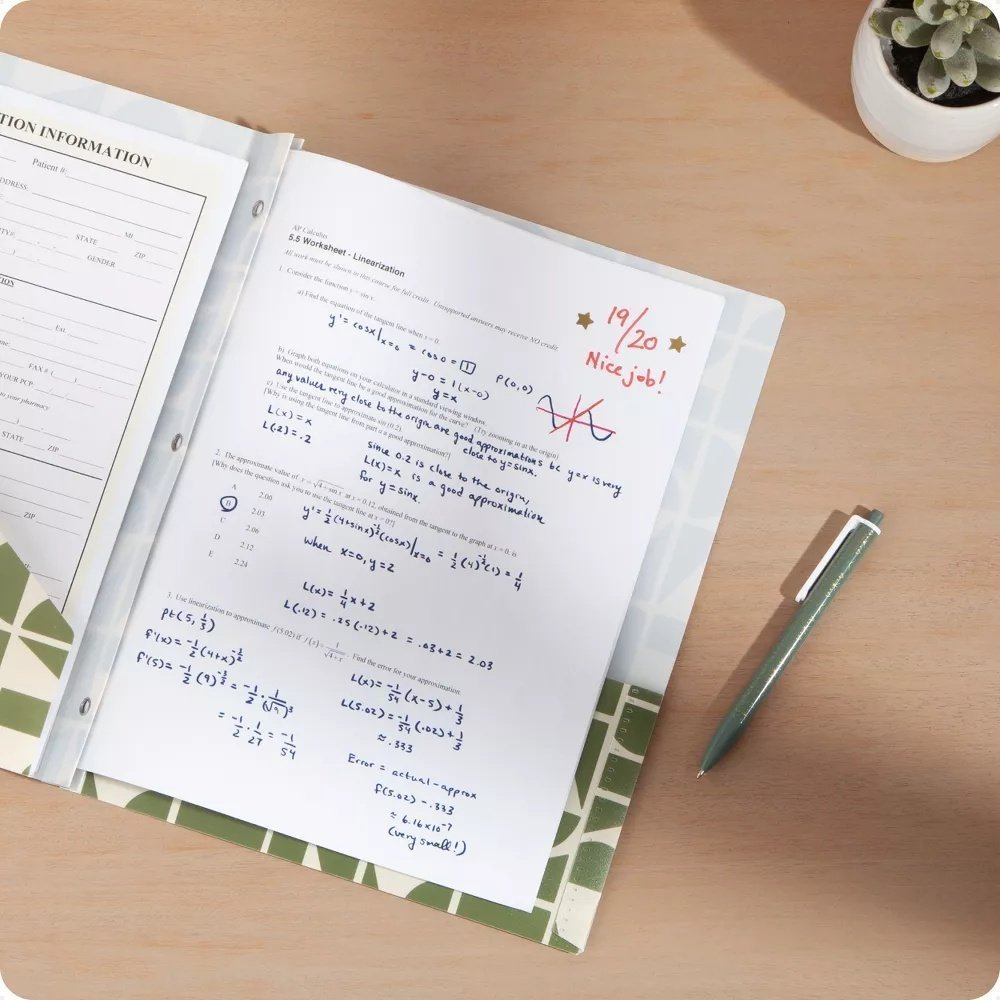 TION INFORMATION
Patient #:
DDRESS:
MI
STATE
ZIP
GENDER
Ext.
FAX # (
YOUR PCP
to your pharmacy
STATE
ZIP
ZIP
AP Calculus
5.5 Worksheet - Linearization
All work must be shown in this course for full credit. Unsupported answers may receive NO credit.
19/20
Nice job!
1. Consider the function y = sin x.
a) Find the equation of the tangent line when x = 0.
y' = cosx|x=0 = cos0 = 1
P(0,0)
y-0 = 1(x-0)
y=x
b) Graph both equations on your calculator in a standard viewing window.
When would the tangent line be a good approximation for the curve? (Try zooming in at the origin)
any values very close to the origin are good approximations bc y=x is very
close to y=sinx.
c) Use the tangent line to approximate sin (0.2).
[Why is using the tangent line from part a a good approximation?]
L(x) = x
L(.2) = .2
since 0.2 is close to the origin,
L(x)=x is a good approximation
for y=sinx.
2. The approximate value of y = √4+sin x at x = 0.12, obtained from the tangent to the graph at x = 0, is
[Why does the question ask you to use the tangent line at x = 0?]
A 2.00
B 2.03
C 2.06
D 2.12
E 2.24
y' = ½(4+sinx)^-½(cosx)|x=0 = ½(4)^-½(1) = ¼
when x=0, y=2
L(x) = ¼x+2
L(.12) = .25(.12)+2 = .03+2 = 2.03
3. Use linearization to approximate f(5.02) if f(x) = 1/√4+x. Find the error for your approximation.
pt(5, ⅓)
f'(x) = -½(4+x)^-3/2
f'(5) = -½(9)^-3/2 = -½ · 1/(√9)³
= -½ · 1/27 = -1/54
L(x) = -1/54(x-5)+⅓
L(5.02) = -1/54(.02)+⅓
≈ .333
Error = actual-approx
f(5.02) - .333
≈ 6.16×10^-7
(very small!)